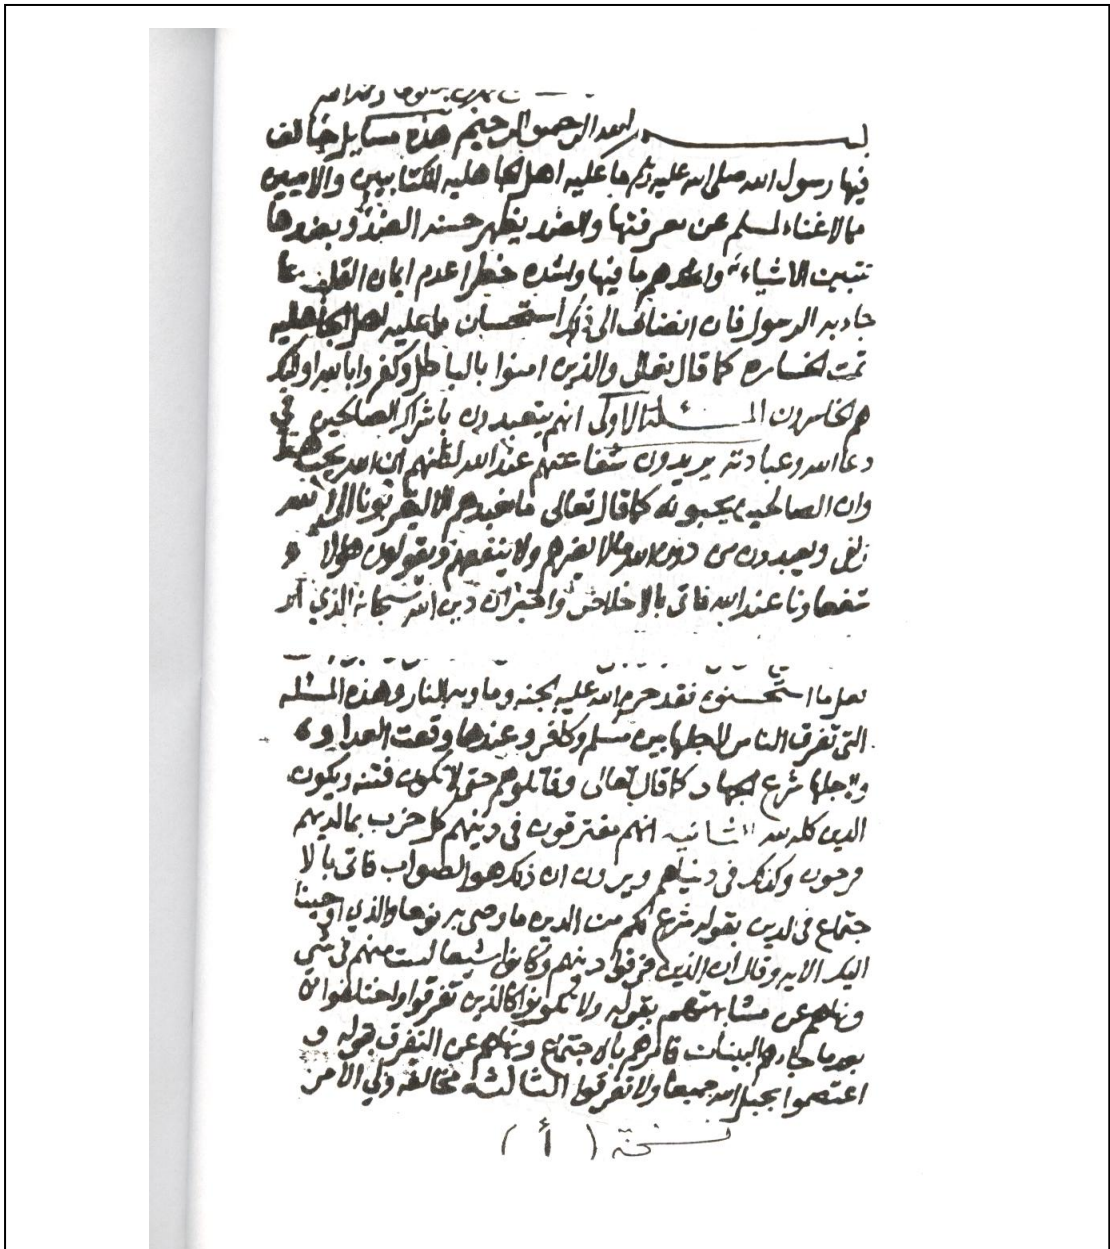 بسم الله الرحمن الرحيم هذه مسايل خالف
فيها رسول الله صلى الله عليه وسلم ما عليه اهل الجاهليه الكتابيين والاميين
مما لا غناء لمسلم عن معرفتها والضد يظهر حسنه الضد وبضدها
تتبين الاشياء واهم ما فيها واشده خطرا عدم ايمان القلب بما
جاء به الرسول فان انضاف الى ذلك استحسان ما عليه اهل الجاهليه
تمت الخساره كما قال تعالى والذين امنوا بالباطل وكفروا بالله اوليك
هم الخاسرون المسئلة الاولى انهم يتعبدون باشراك الصالحين في
دعاء الله وعبادته يريدون شفاعتهم عند الله لظنهم ان الله يحب
وان الصالحين يحبونه كما قال تعالى ما نعبدهم الا ليقربونا الى الله
زلفى ويعبدون من دون الله ما لا يضرهم ولا ينفعهم ويقولون هؤلا
شفعاونا عند الله فاتى بالاخلاص واخبر ان دين الله سبحانه الذي
فعل ما استحسنوه فقد حرم الله عليه الجنه وماويه النار وهذه المسئله
التي تفرق الناس لاجلها بين مسلم وكافر وعندها وقعت العداوه
ولاجلها شرع الجهاد كما قال تعالى وقاتلوهم حتى لا تكون فتنه ويكون
الدين كله لله الثانيه انهم مفترقون في دينهم كل حزب بما لديهم
فرحون وكذلك في دنياهم ويرون ان ذلك هو الصواب فاتى بالا
جتماع في الدين بقوله شرع لكم من الدين ما وصى به نوحا والذي اوحينا
اليك الايه وقال ان الذين فرقوا دينهم وكانوا شيعا لست منهم في شي
ونهاهم عن مشابهتهم بقوله ولا تكونوا كالذين تفرقوا واختلفوا من
بعد ما جاءهم البينات فامرهم بالاجتماع ونهاهم عن التفرق بقوله و
اعتصموا بحبل الله جميعا ولا تفرقوا الثالثه مخالفة ولي الامر
نسخة ( أ )